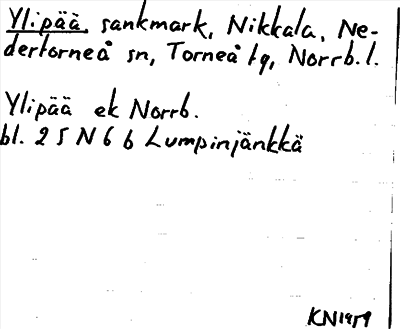 Ylipää, sankmark, Nikkala, Ne-
dertorneå sn, Torneå tg, Norrb.l.
Ylipää ek Norrb.
bl. 25 N 6 b Lumpinjänkkä
KN1959